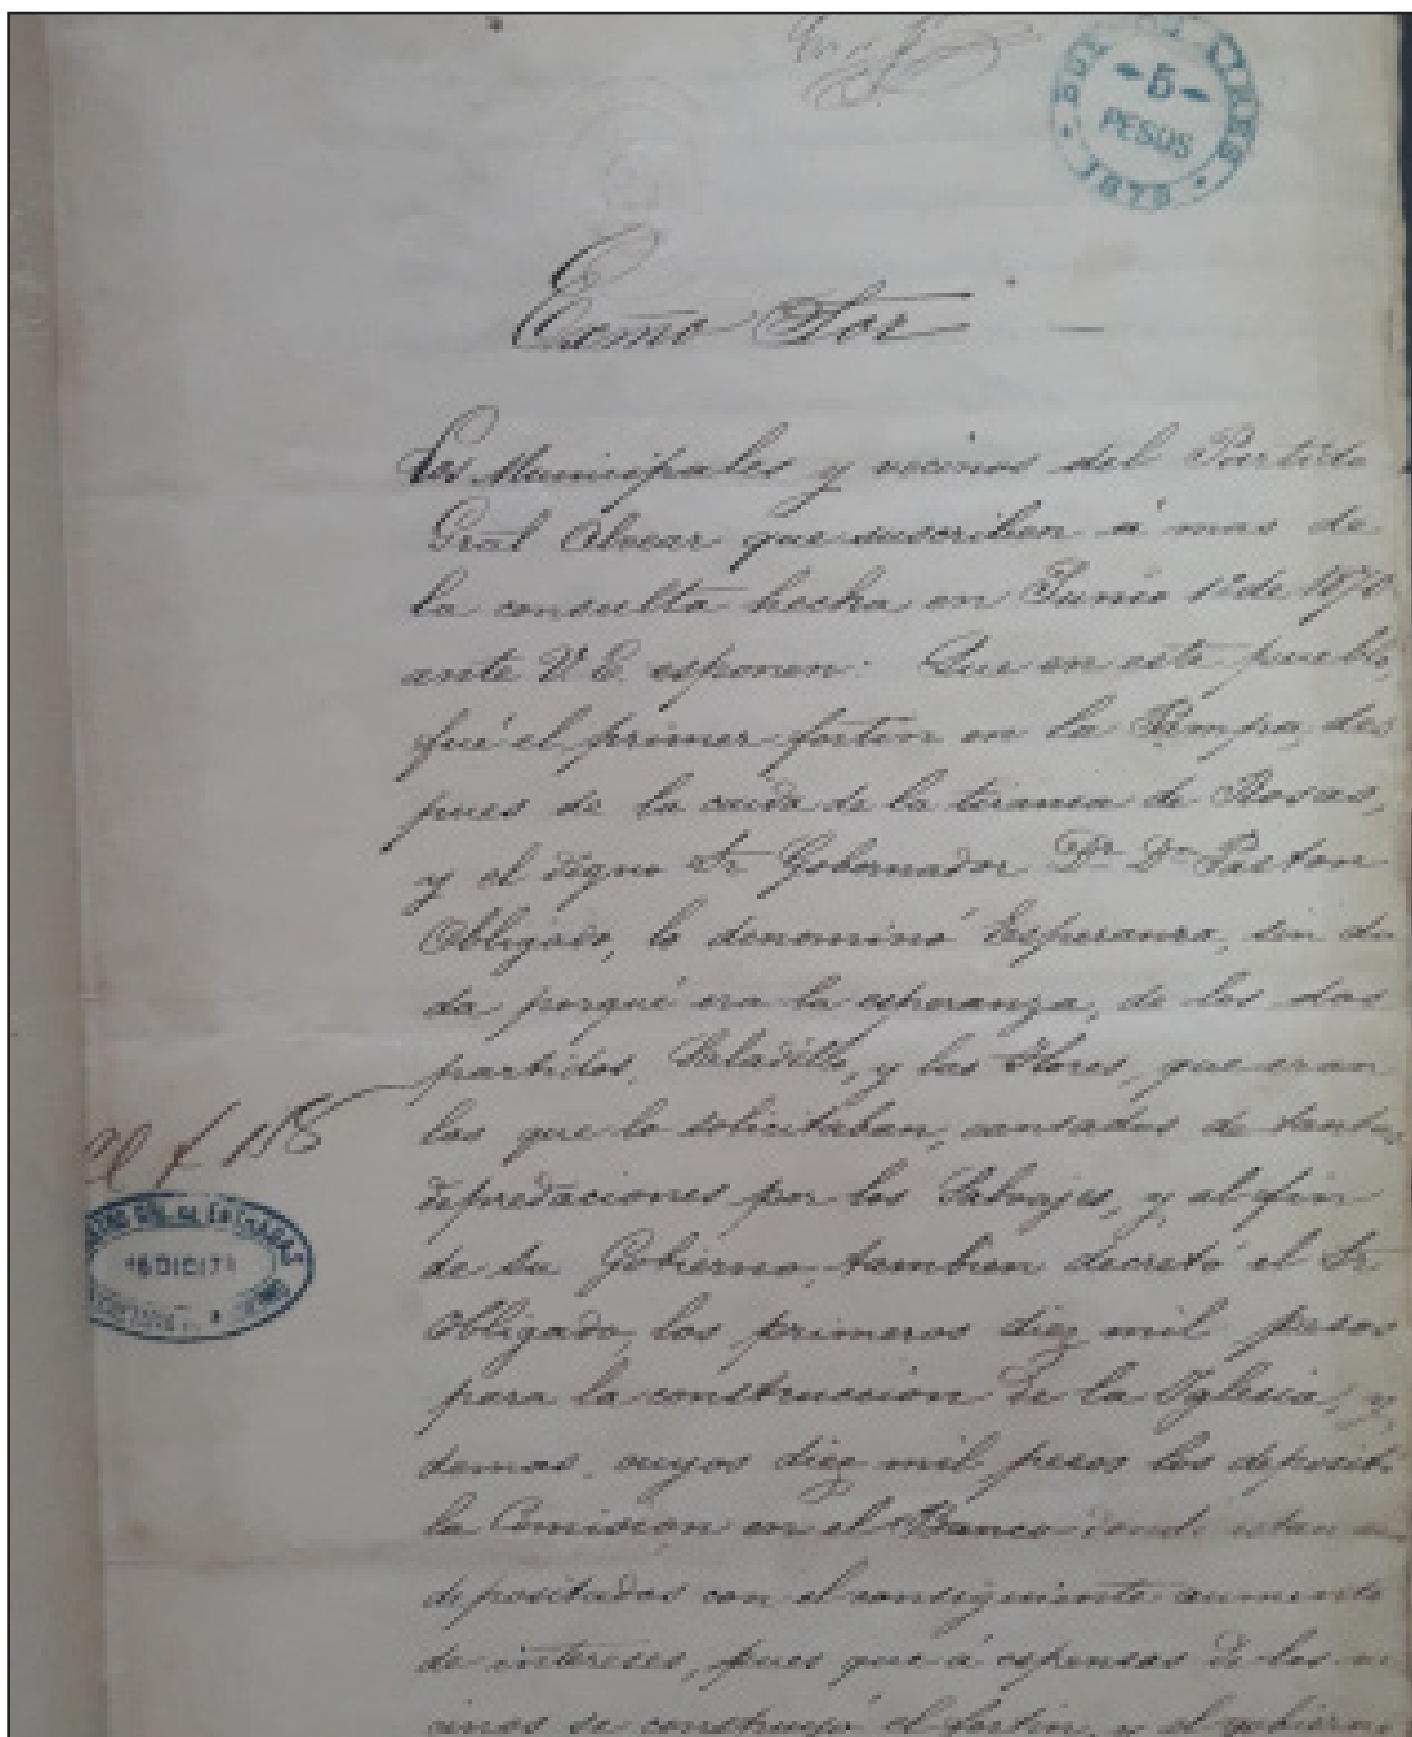 BUENOS AIRES
-5-
PESOS
Exmo Sor
Los Municipales y vecinos del Partido
Gral Alvear que suscriben á mas de
la consulta hecha en Junio 1º de 187
ante V.E. esponen: Que en este pueblo,
fué el primer fortin en la Pampa des
pues de la caida de la tirania de Rosas,
y el digno Sr Gobernador Dr Dn Pastor
Obligado, lo denominó Esperanza, sin du
da porqué era la esperanza, de los dos
partidos, Saladillo, y las Flores, que eran
los que lo solicitaban, cansados de tantas
depredaciones por los Salvajes, y al fin
de su Gobierno, tambien decretó el Sr
Obligado, los primeros diez mil pesos
para la construccion de la Yglesia, y
demas, cuyos diez mil pesos los depositó
la Comision en el Banco donde estan
depositados con el consiguiente aumento
de intereses, pues que á espensas de los ve
cinos se construyó el fortin, y el gobierno
16 DIC 17